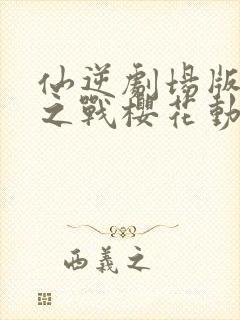 仙逆劇場版
之戰櫻花動
西義之